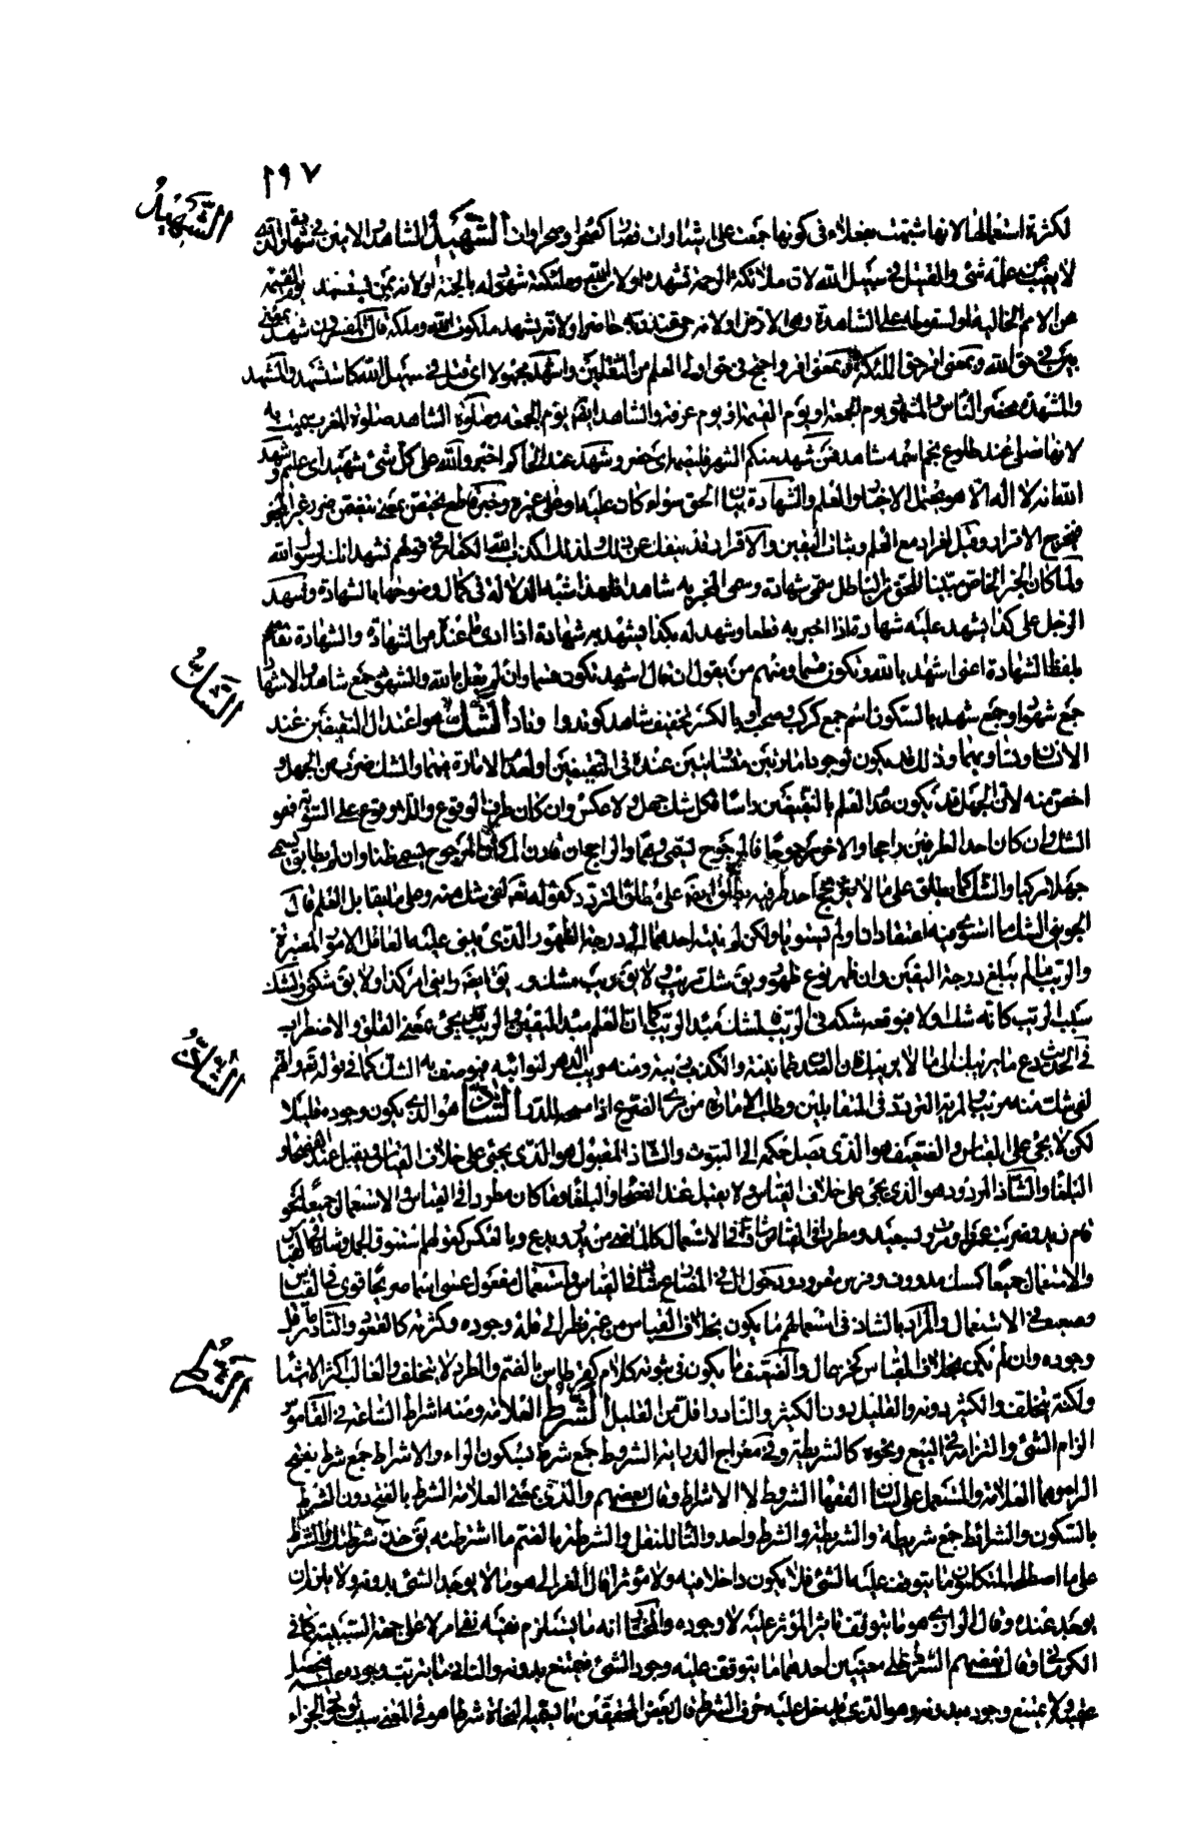 ١٩٧
الشهيد
لكثرة استعمالها لانها شبهت بفعلاء في كونها جمعت على اشياوات فصار كخضراء وصحراوات الشهيد الشاهد الامين في شهادته الذي
لا يغيب عن علمه شئ والقتيل في سبيل الله لان ملائكة الرحمة تشهده او لان الله وملئكته شهود له بالجنة او لانه ممن يستشهد يوم القيمة
على الامم الخالية او لسقوطه على الشاهدة وهي الارض او لانه حي عند ربه حاضر او لانه يشهد ملكوت الله وملكه
بين في حق الله وبمعنى اقر في حق الملئكة وبمعنى اقر واحتج في حق اولي العلم من الثقلين واشهد مجهولا اي قتل في سبيل الله كاستشهد والمشهد
والمشهدة محضر الناس والمشهود يوم الجمعة او يوم القيمة او يوم عرفة والشاهد ايضا يوم الجمعة وصلوة الشاهد صلوة المغرب سميت به
لانها تصلى عند طلوع نجم اسمه شاهد فمن شهد منكم الشهر فليصمه اي حضر وشهد عند الحاكم اخبر والله على كل شئ شهيد اي عليم وشهد
الله انه لا اله الا هو يحتمل الاخبار والعلم والشهادة بيان الحق سواء كان عليه او على غيره وخبر قاطع يختص بمعنى يتضمن ضرر غير المخبر
فيخرج الاقرار وقيل اقرار مع العلم وثبات اليقين والاقرار قد ينفك عن ذلك ولذلك اكذب الله الكفار في قولهم نشهد انك لرسول الله
ولما كان الخبر الخاص مبينا للحق من الباطل سمي شهادة وسمي المخبر به شاهدا فلهذا شبه الدلالة في كمال وضوحها بالشهادة وشهد
الرجل على كذا يشهد عليه شهادة اذا اخبر به قطعا وشهد له بكذا يشهد به شهادة اذا ادى ما عنده من الشهادة والشهادة تقام
بلفظ الشهادة اعني اشهد بالله وتكون قسما ومنهم من يقول ان قال اشهد تكون قسما وان لم يقل بالله والشهود جمع شاهد والاشهاد
الشك
جمع شهود او جمع شهد بالسكون اسم جمع كركب وصحب او بالكسر تخفيف شاهد الشك هو اعتدال النقيضين عند
الانسان وتساويهما وذلك قد يكون لوجود امارتين متساويتين عنده في النقيضين او لعدم الامارة فيهما والشك ضرب من الجهل و
اخص منه لان الجهل قد يكون عدم العلم بالنقيضين راسا فكل شك جهل ولا عكس وان كان طرف الوقوع واللاوقوع على السوية فهو
الشك وان كان احد الطرفين راجحا والاخر مرجوحا فالمرجوح يسمى وهما والراجح ان قارن امكان المرجوح يسمى ظنا وان لم يطابق يسمى
جهلا مركبا والشك كما يطلق على ما لا يترجح احد طرفيه يطلق ايضا على مطلق التردد كقوله تعالى لفي شك منه وعلى ما يقابل العلم قال
الجويني الشك ما استوى فيه اعتقادان او لم يستويا ولكن لم ينته احدهما الى درجة الظهور الذي يبني عليه العاقل الامور المعتبرة
والريب ما لم يبلغ درجة اليقين وان ظهر نوع ظهور ويق شك مريب ولا يق ريب مشكك ويق ايضا رابني امر كذا ولا يق شكني والشك
سبب الريب كانه شك اولا فيوقعه شكه في الريب فالشك مبدأ الريب كما ان العلم مبدأ اليقين والريب قد يجئ بمعنى القلق والاضطراب
الشاذ
في الحديث دع ما يريبك الى ما لا يريبك فان الصدق طمانينة والكذب ريبة ومنه ريب الدهر لنوائبه فيوصف به الشك كما في قوله تعالى وانهم
لفي شك منه مريب والمرية التردد في المتقابلين وطلب الامارة من مرى الضرع اذا مسحه للدر الشاذ هو الذي يكون وجوده قليلا
لكن لا يجئ على القياس والضعيف هو الذي يصل حكمه الى الثبوت والشاذ المقبول هو الذي يجئ على خلاف القياس ويقبل عند الفصحاء و
البلغاء والشاذ المردود هو الذي يجئ على خلاف القياس ولا يقبل عند الفصحاء والبلغاء وما كان مطردا في القياس والاستعمال جميعا نحو
قام زيد وضربت عمرا ومررت بسعيد ومطرد في القياس شاذ في الاستعمال كالماضي من يذر ويدع وبالعكس كقولهم استنوق الجمل وشاذ في القياس
والاستعمال جميعا كمسك مدووف وفرس مقوود ودخول ال في المضارع شاذ في القياس واستعمال مفعول عسى اسما صريحا قوي في القياس
وضعيف في الاستعمال والمراد بالشاذ في استعمالهم ما يكون بخلاف القياس من غير نظر الى قلة وجوده وكثرته كالقعود والنادر ما قل
الشرط
وجوده وان لم يكن بخلاف القياس كخزعال والضعيف ما يكون في ثبوته كلام كقرطاس بالضم والمطرد لا يتخلف والغالب اكثر الاشياء
ولكنه يتخلف والكثير دونه والقليل دون الكثير والنادر اقل من القليل الشرط العلامة ومنه اشراط الساعة في القاموس
الزام الشئ والتزامه في البيع ونحوه كالشريطة وفي معراج الدراية الشروط جمع شرط بسكون الراء والاشراط جمع شرط بفتح
الراء وهما العلامة والمستعمل على لسان الفقهاء الشروط لا الاشراط وقال بعضهم والذي بمعنى العلامة الشرط بالفتح دون الشرط
بالسكون والشرائط جمع شريطة والشريطة والشرط واحد والتاء للنقل والشرطة بالضم ما اشترطته يق خذ شرطتك والشرط
على ما اصطلحه المتكلمون ما يتوقف عليه الشئ فلا يكون داخلا فيه ولا مؤثرا قال الغزالي هو ما لا يوجد الشئ بدونه ولا يلزم ان
يوجد عنده وقال الرازي هو ما يتوقف تاثير المؤثر عليه لا وجوده والمختار انه ما يستلزم نفيه نفي امر لا على جهة السببية كما في
الكرماني وقال بعضهم الشرط على معنيين احدهما ما يتوقف عليه وجود الشئ فيمتنع بدونه والثاني ما يترتب وجوده عليه فيحصل
عقيبه ولا يمتنع وجوده بدونه وهو الذي يدخل عليه حرف الشرط قال بعض المحققين ما يسميه النحاة شرطا هو في المعنى سبب لوجود الجزاء